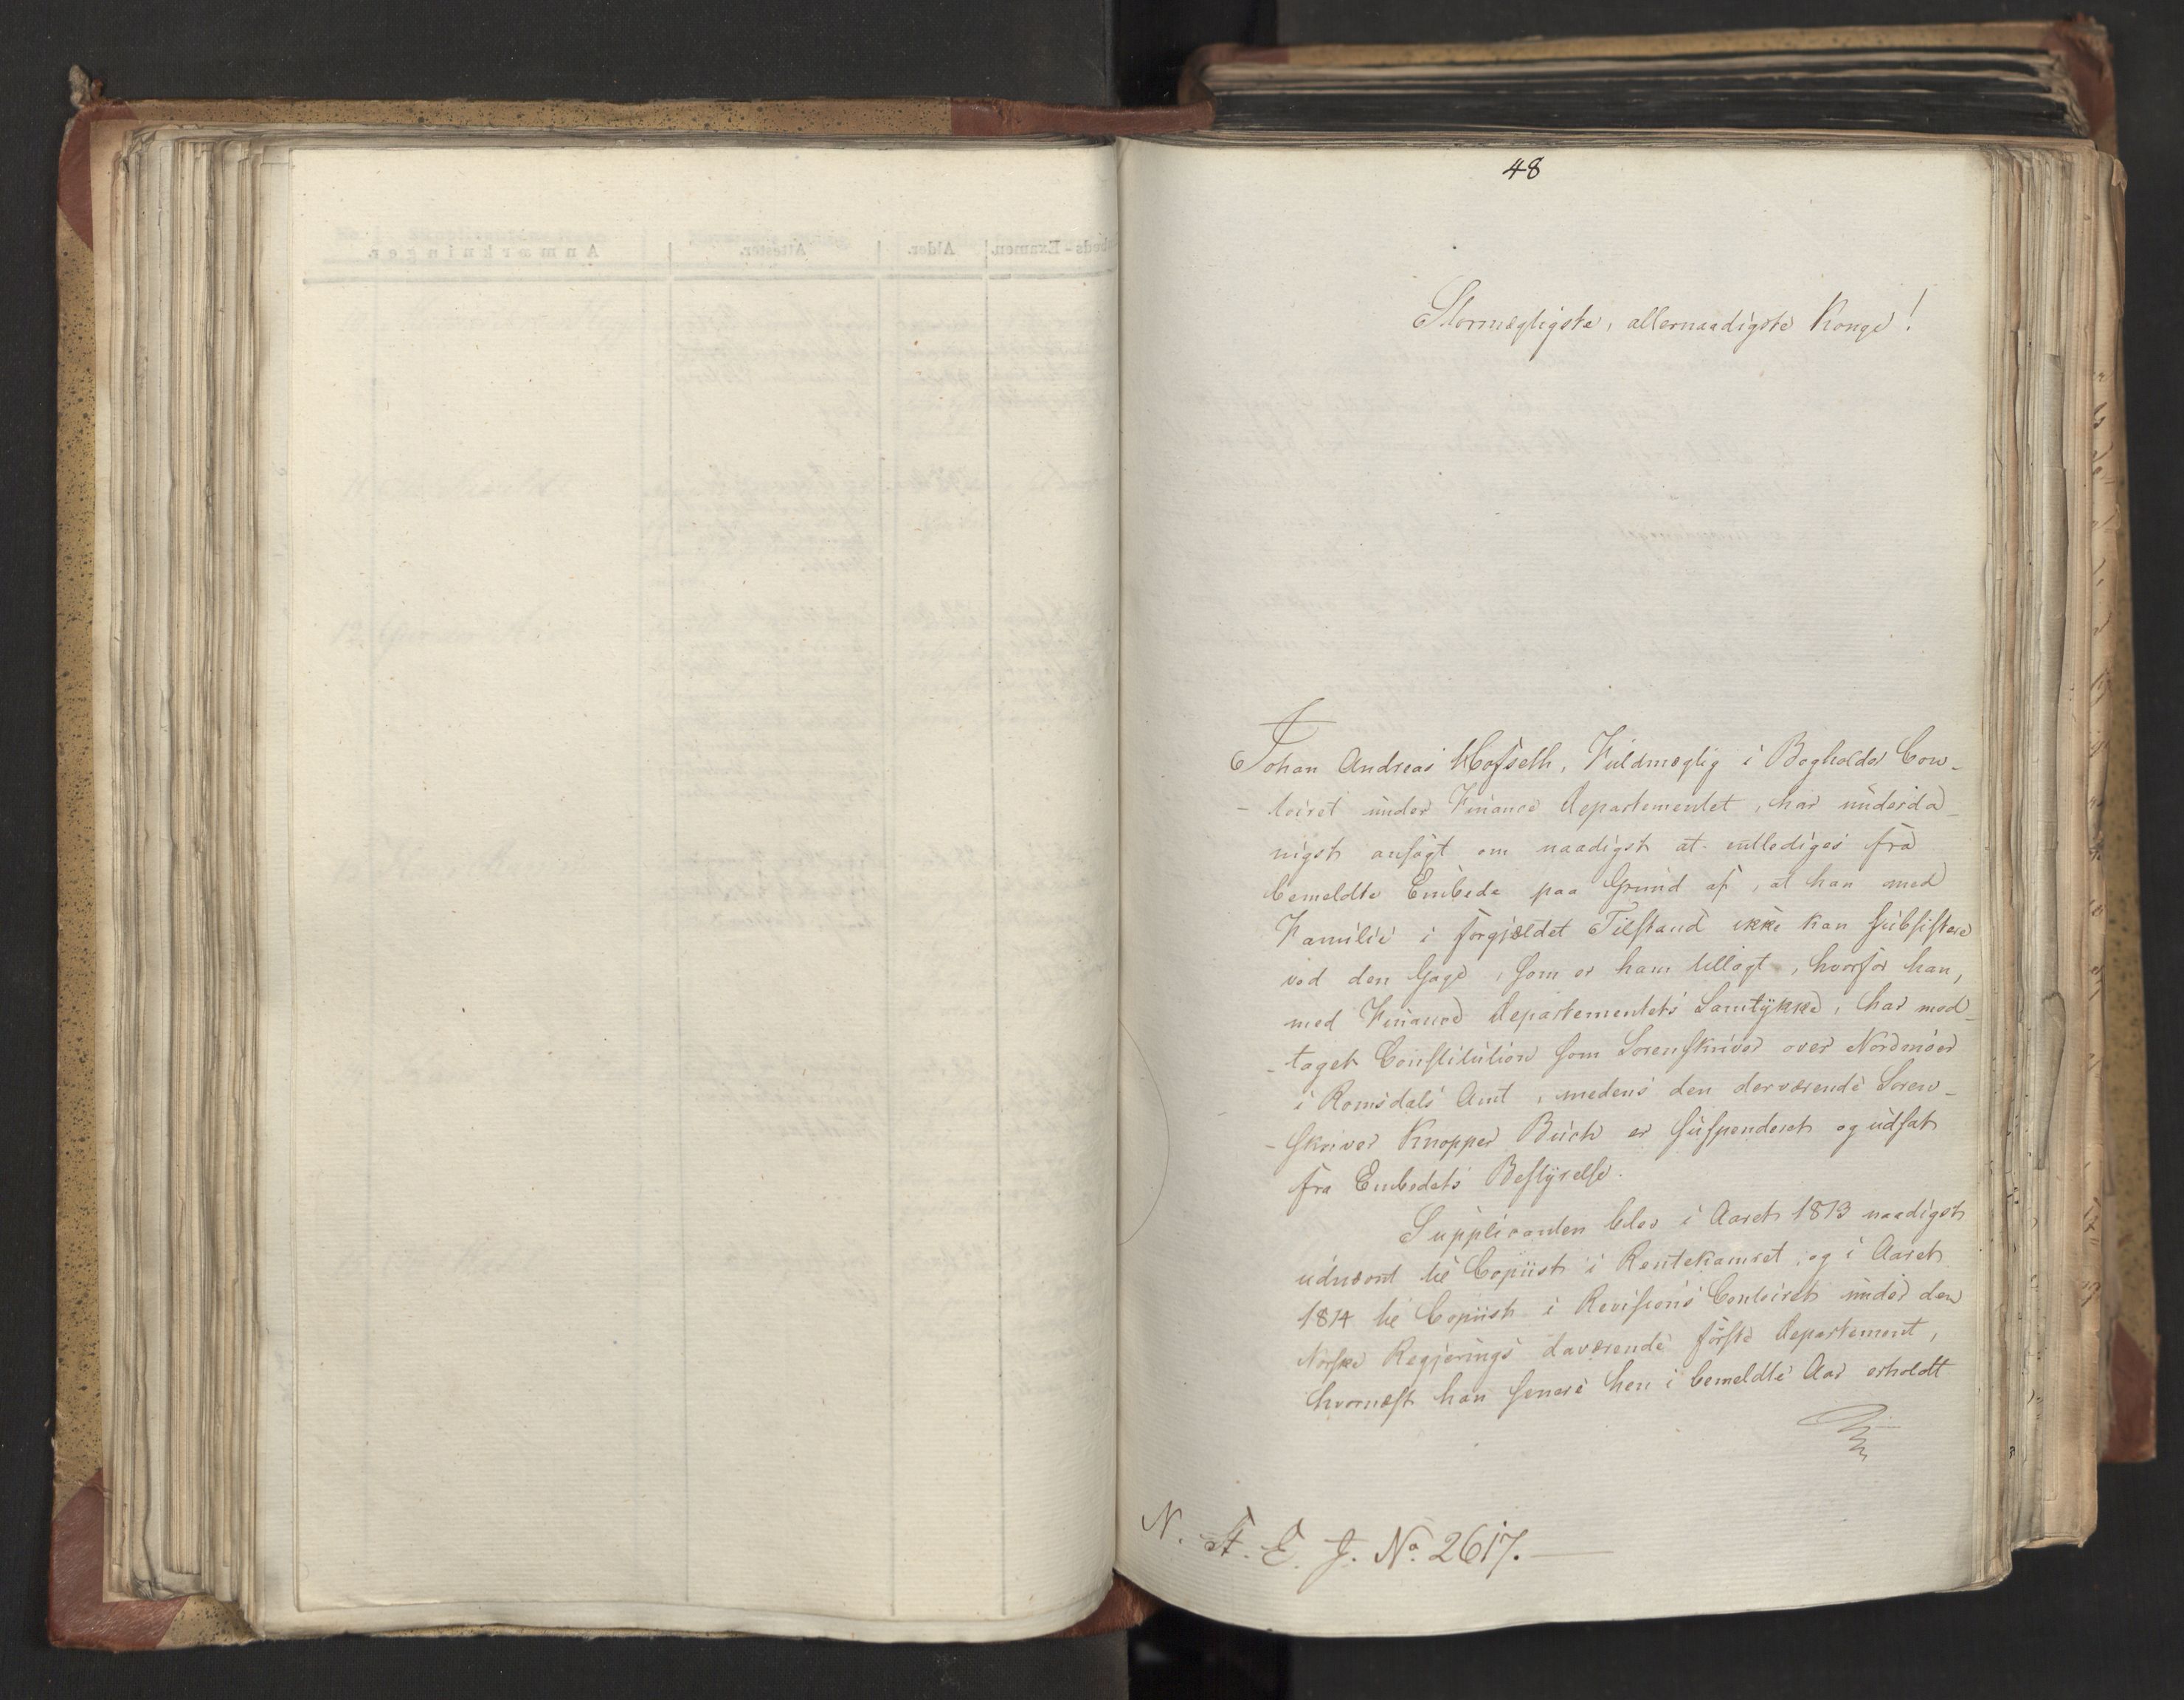 48
Stormægtigste, allernaadigste Konge!
Johan Andreas Hofseth, Fuldmægtig i Bogholder Con-
-toiret under Finance Departementet, har underda-
nigst ansøgt om naadigst at entlediges fra
bemeldte Embede paa Grund af, at han med
Familie i forgjældet Tilstand ikke kan subsistere
ved den Gage, som er ham tillagt, hvorfor han,
med Finance Departementets Samtykke, har mod-
-taget Constitution som Sorenskriver over Nordmøer
i Romsdals Amt, medens den derværende Soren-
-skriver Knopper Buch er suspenderet og udsat
fra Embedets Bestyrelse.
Supplicanten blev i Aaret 1813 naadigst
udnævnt til Copiist i Rentekamret, og i Aaret
1814 til Copiist i Revisions Contoiret under den
Norske Regjerings daværende første Departement,
hvornæst han senere hen i bemeldte Aar erholdt
N. F. E. J. No. 2617.